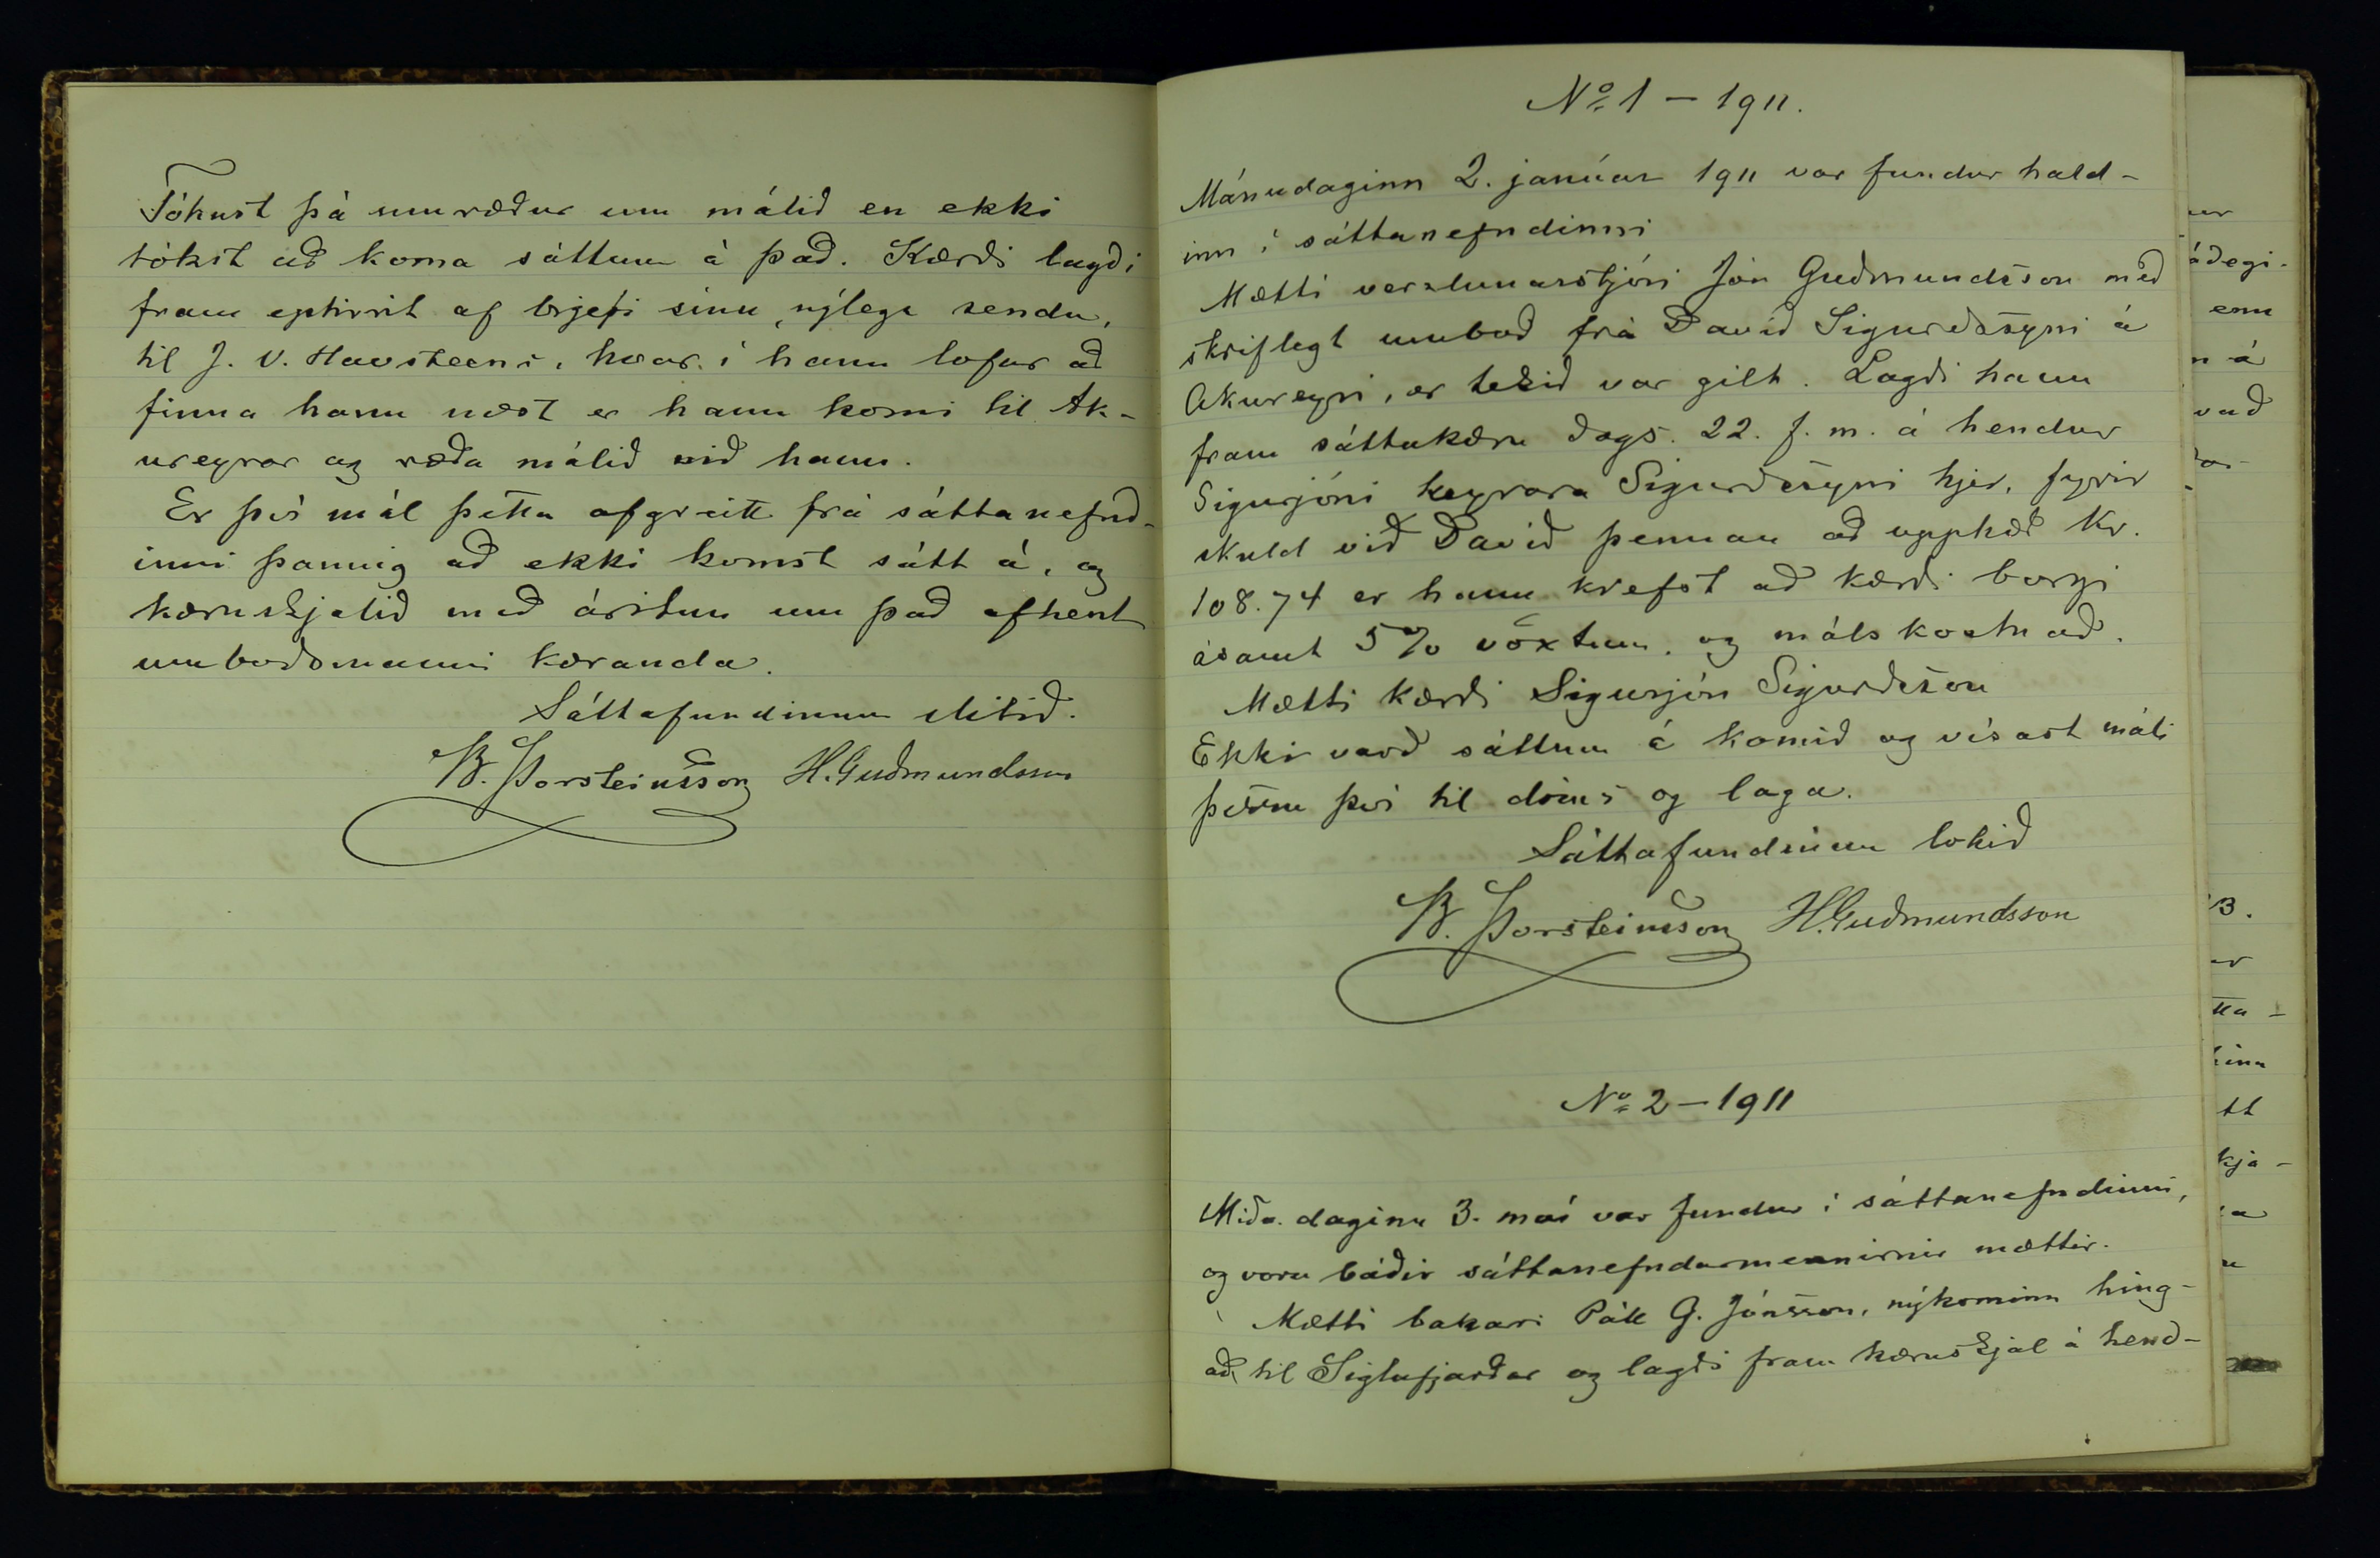 Tókust þá umræður um málið en ekki
tókst að koma sáttum á það. Kærði lagði
fram eptirrit af brjefi sínu, nýlega sendu,
til J. V. Havsteens, hvar í hann lofar að
finna hann næst er hann komi til Ak-
ureyrar og ræða málið við hann.
Er því mál þetta afgreitt frá sáttanefnd-
inni þannig að ekki komst sátt á, og
kæruskjalið með áritun um það afhent
umboðsmanni kæranda.
Sáttafundinum slitið.
B. Þorsteinsson H. Guðmundsson
No 1 – 1911.
Mánudaginn 2. janúar 1911 var fundur hald-
inn í sáttanefndinni
Mætti verzlunarstjóri Jón Guðmundsson með
skriflegt umboð frá Davíð Sigurðssyni á
Akureyri, er tekið var gilt. Lagði hann
fram sáttakæru dags. 22. f. m. á hendur
Sigurjóni keyrara Sigurðssyni hjer, fyrir
skuld við Davíð þennan að upphæð Kr.
108.74 er hann krefst að kærði borgi
ásamt 5% vöxtum, og málskostnað.
Mætti kærði Sigurjón Sigurðsson
Ekki varð sáttum á komið og vísast máli
þessu því til dóms og laga.
Sáttafundinum lokið
B. Þorsteinsson H. Guðmundsson
No 2 – 1911
Miðv.daginn 3. maí var fundur í sáttanefndinni,
og voru báðir sáttanefndarmennirnir mættir.
Mætti bakari Páll G. Jónsson, nýkominn hing-
að til Siglufjarðar og lagði fram kæruskjal á hend-